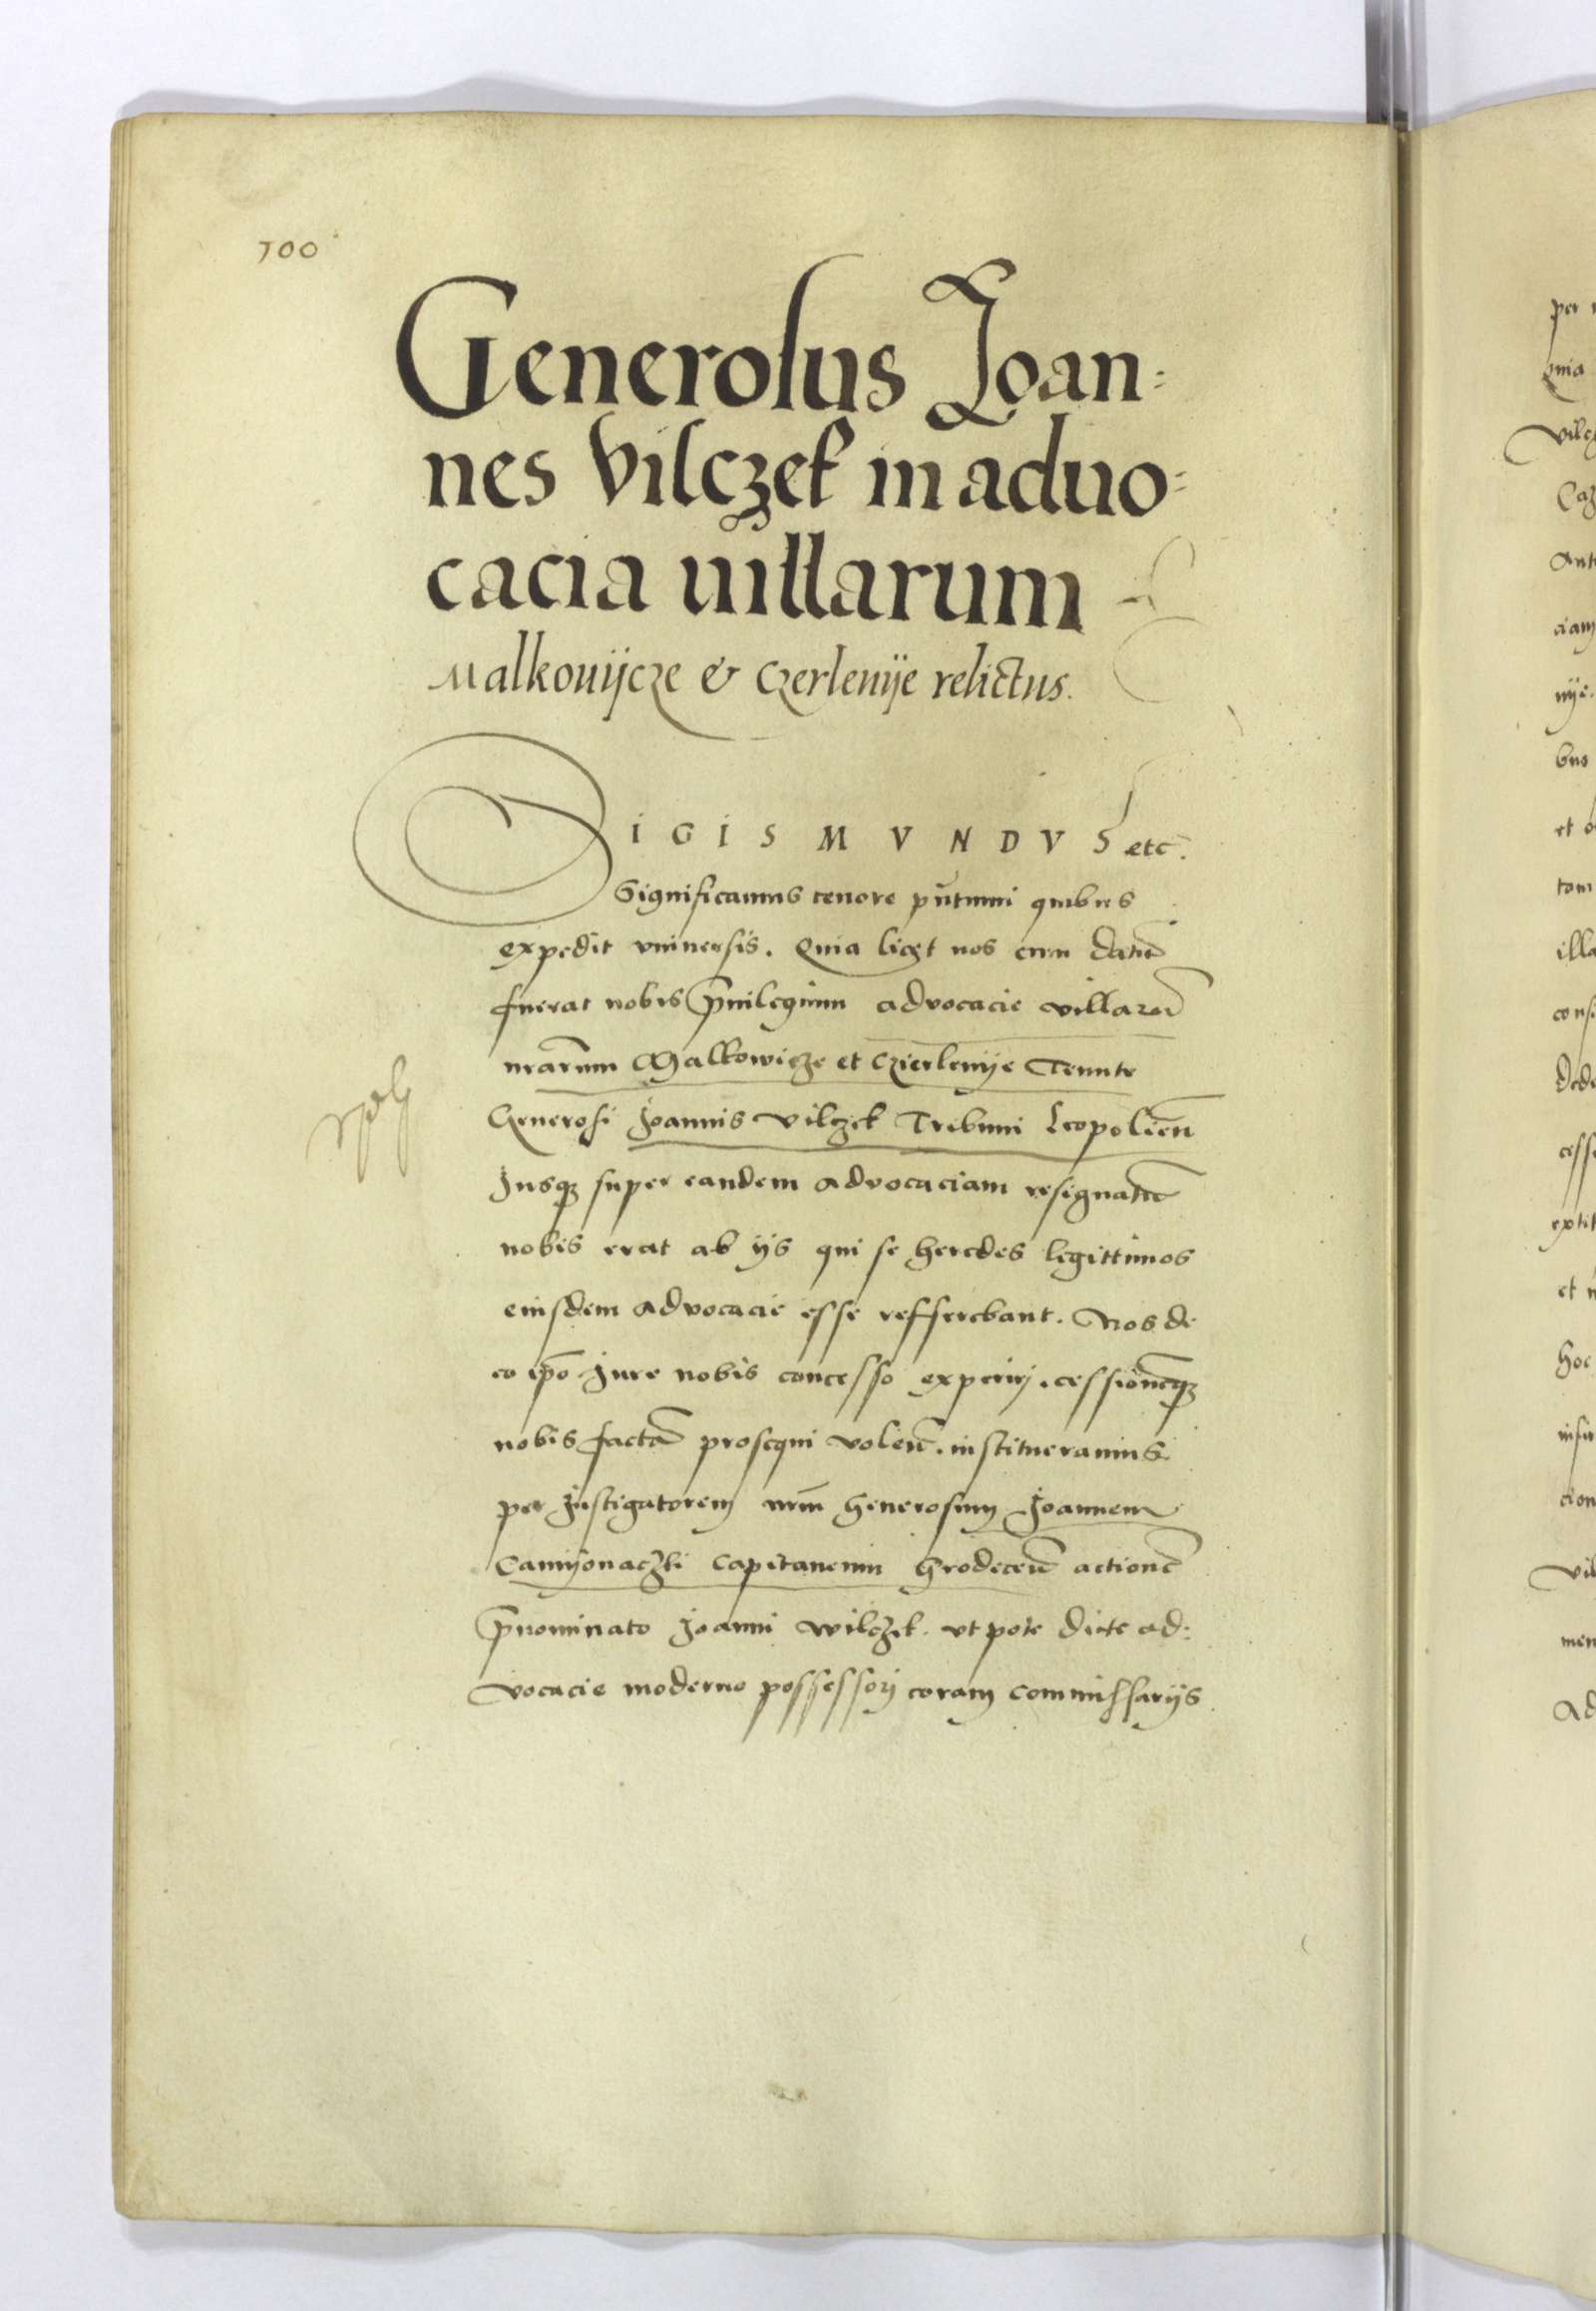 700
Generosus Joan:
nes Vilczek in aduo:
cacia uillarum
Malkouijcze & Czerlenije relictus.
SIGISMVNDVS etc.
Significamus tenore pñtium quibus
expedit vniuersis. Quia licet nos cum datũ
fuerat nobis p̃uilegium advocacie villarũ
nrãrum Malkowicze et Czierlenije Tenute
Generosi Joannis Vilczek Tribuni Leopolieñ
Jusq3 super eandem advocaciam resignatũ
nobis erat ab ijs qui se heredes legittimos
eiusdem advocacie esse refferebant. Nos de
eo ip̃o Jure nobis concesso experirj. cessionẽq3
nobis factã prosequi voleñ. institueramus
per Instigatorem nrm̃ Generosum Joannem
Camijonaczki Capitaneum Grodeceñ actionẽ
p̃nominato Joanni Wilczek. vt pote dicte ad:
vocacie moderno possessorj coram commissarijs
per
Quia
vilcz
Caz
Ant
ciam
nije.
bus
et
tam
illa
consi
Dede
cess
extit
et
hoc
cion
vil
men
Ad